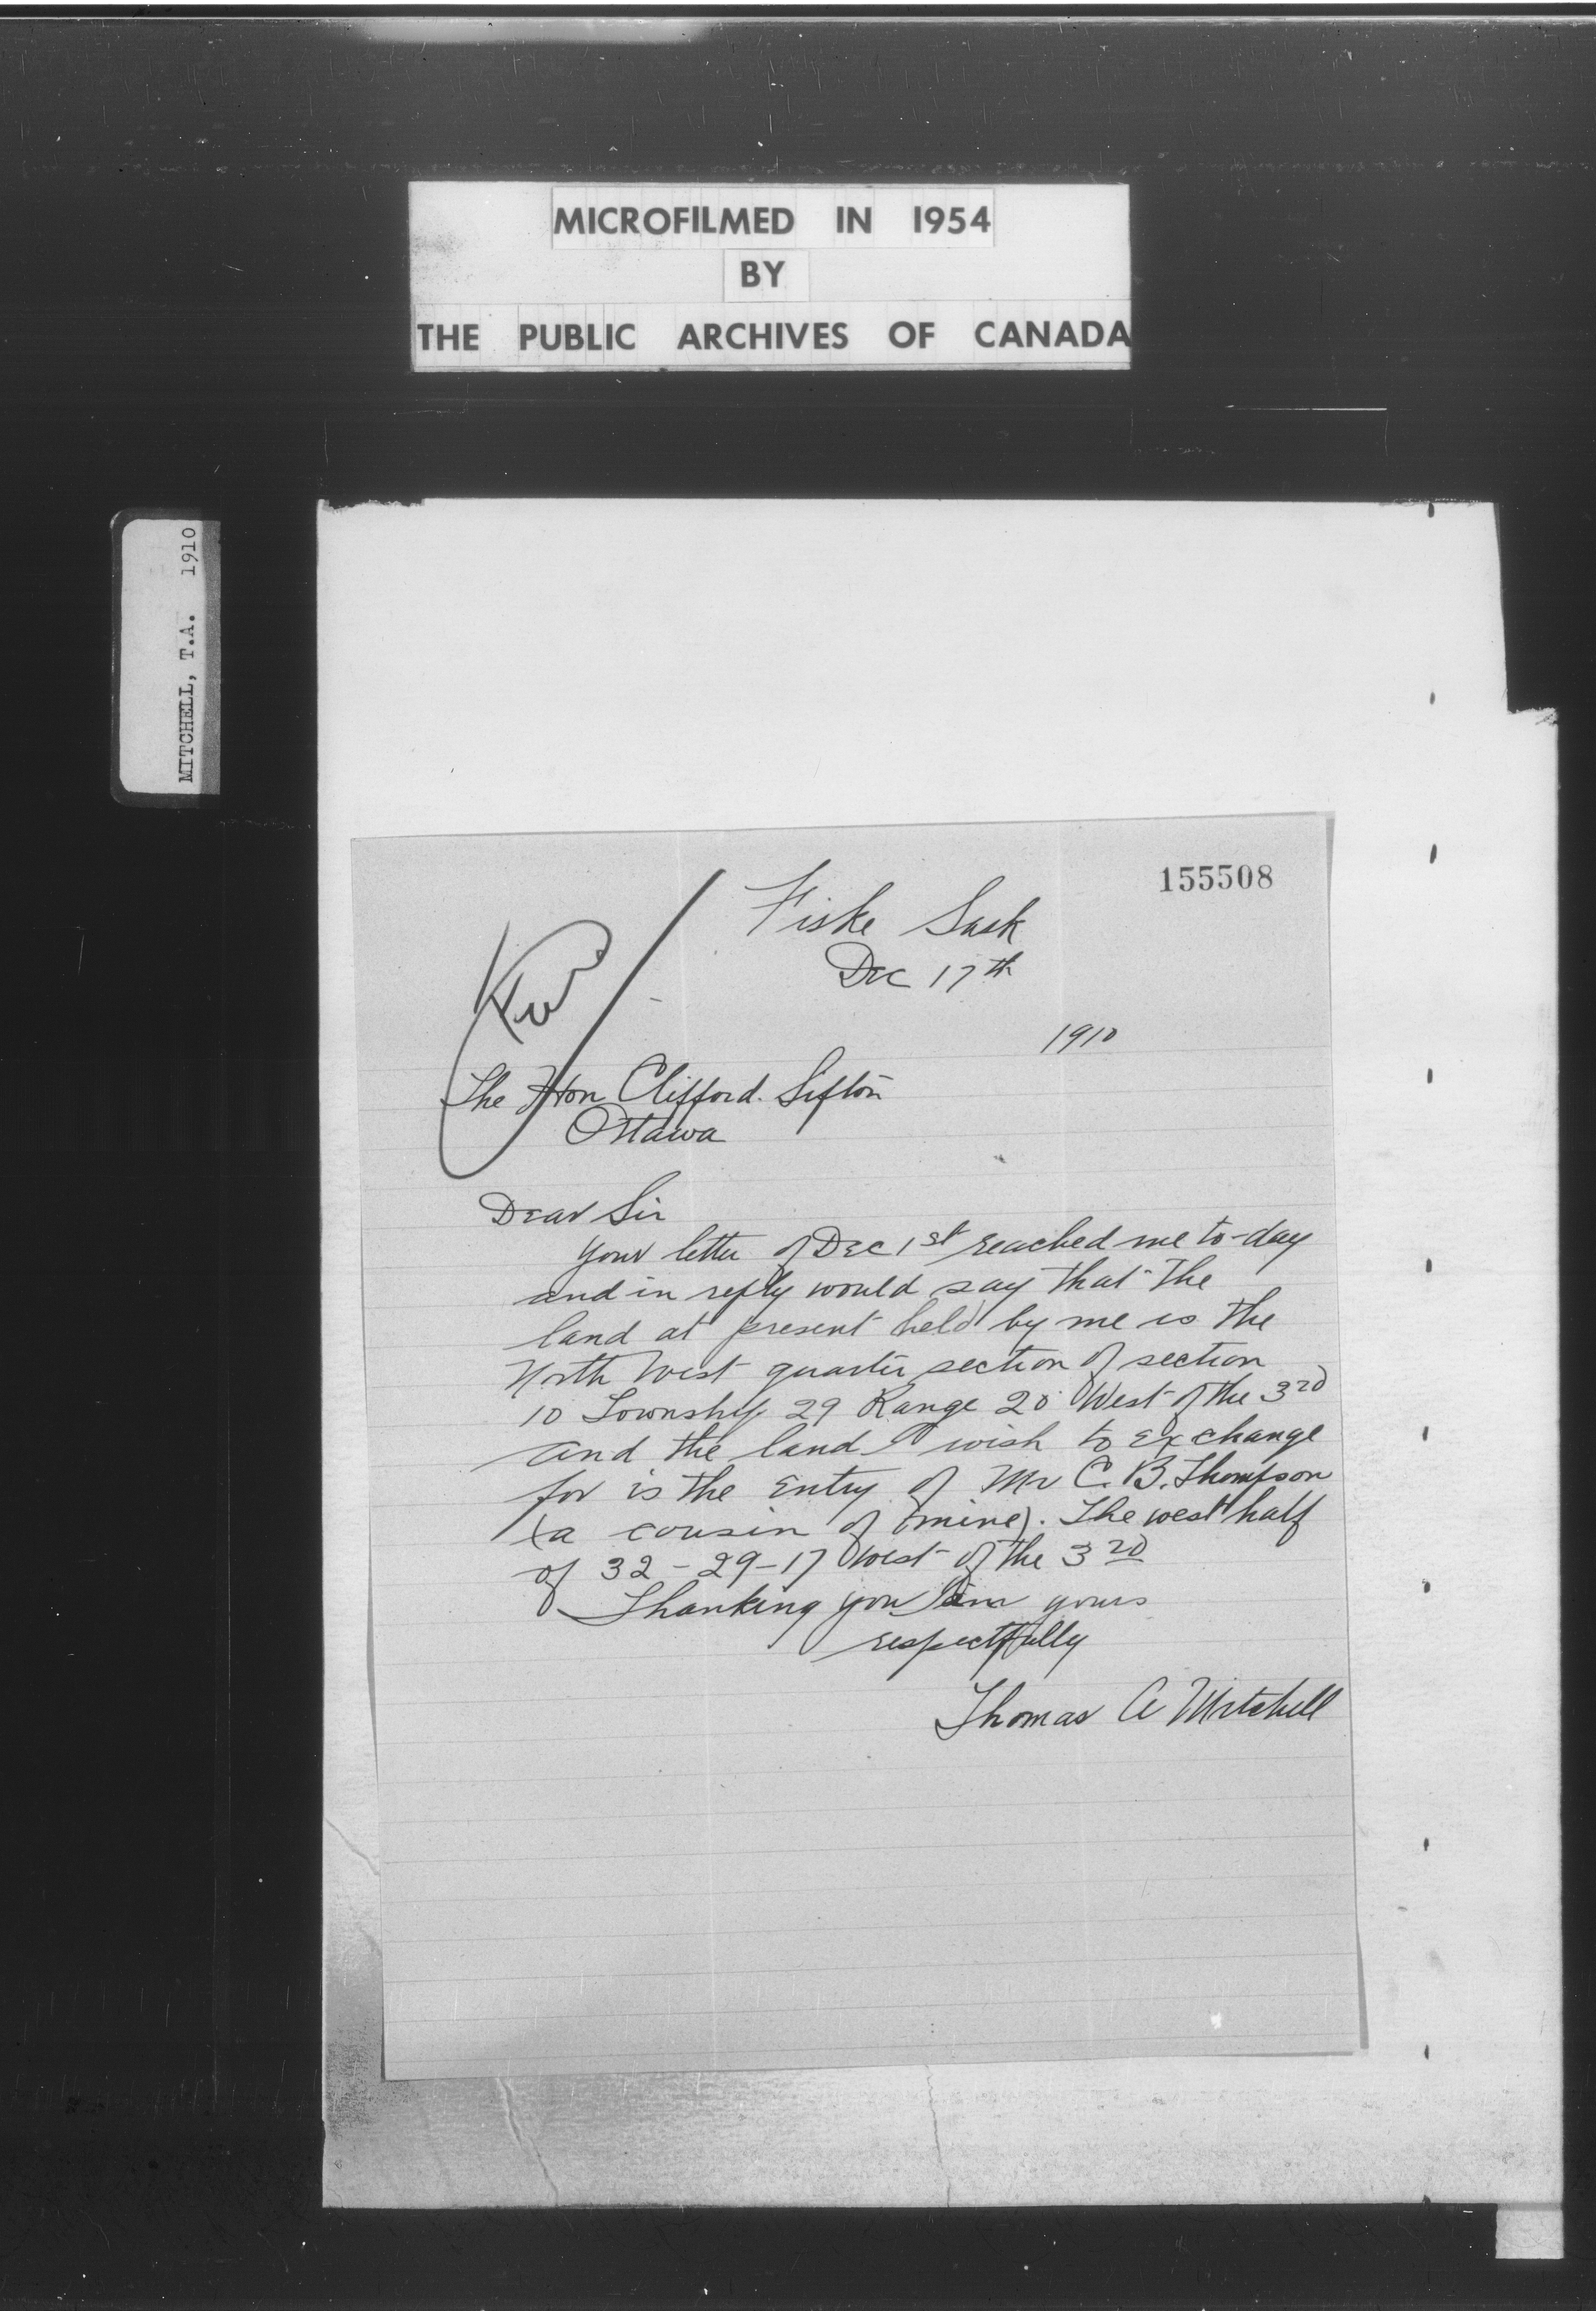 MICROFILMED IN 1954
BY
THE PUBLIC ARCHIVES OF CANADA
MITCHELL, T.A. 1910
155508
Fiske Sask
Dec 17th
1910
The Hon Clifford. Sifton
Ottawa
Dear Sir
your letter of Dec 1st reached me to-day
and in reply would say that the
land at present held by me is the
North West quarter section of section
10 Township 29 Range 20 West of the 3rd
and the land I wish to exchange
for is the Entry of Mr C. B. Thompson
(a cousin of (mine). The west half
of 32-29-17 West of the 3rd
Thanking you I am yours
respectfully
Thomas A Mitchell